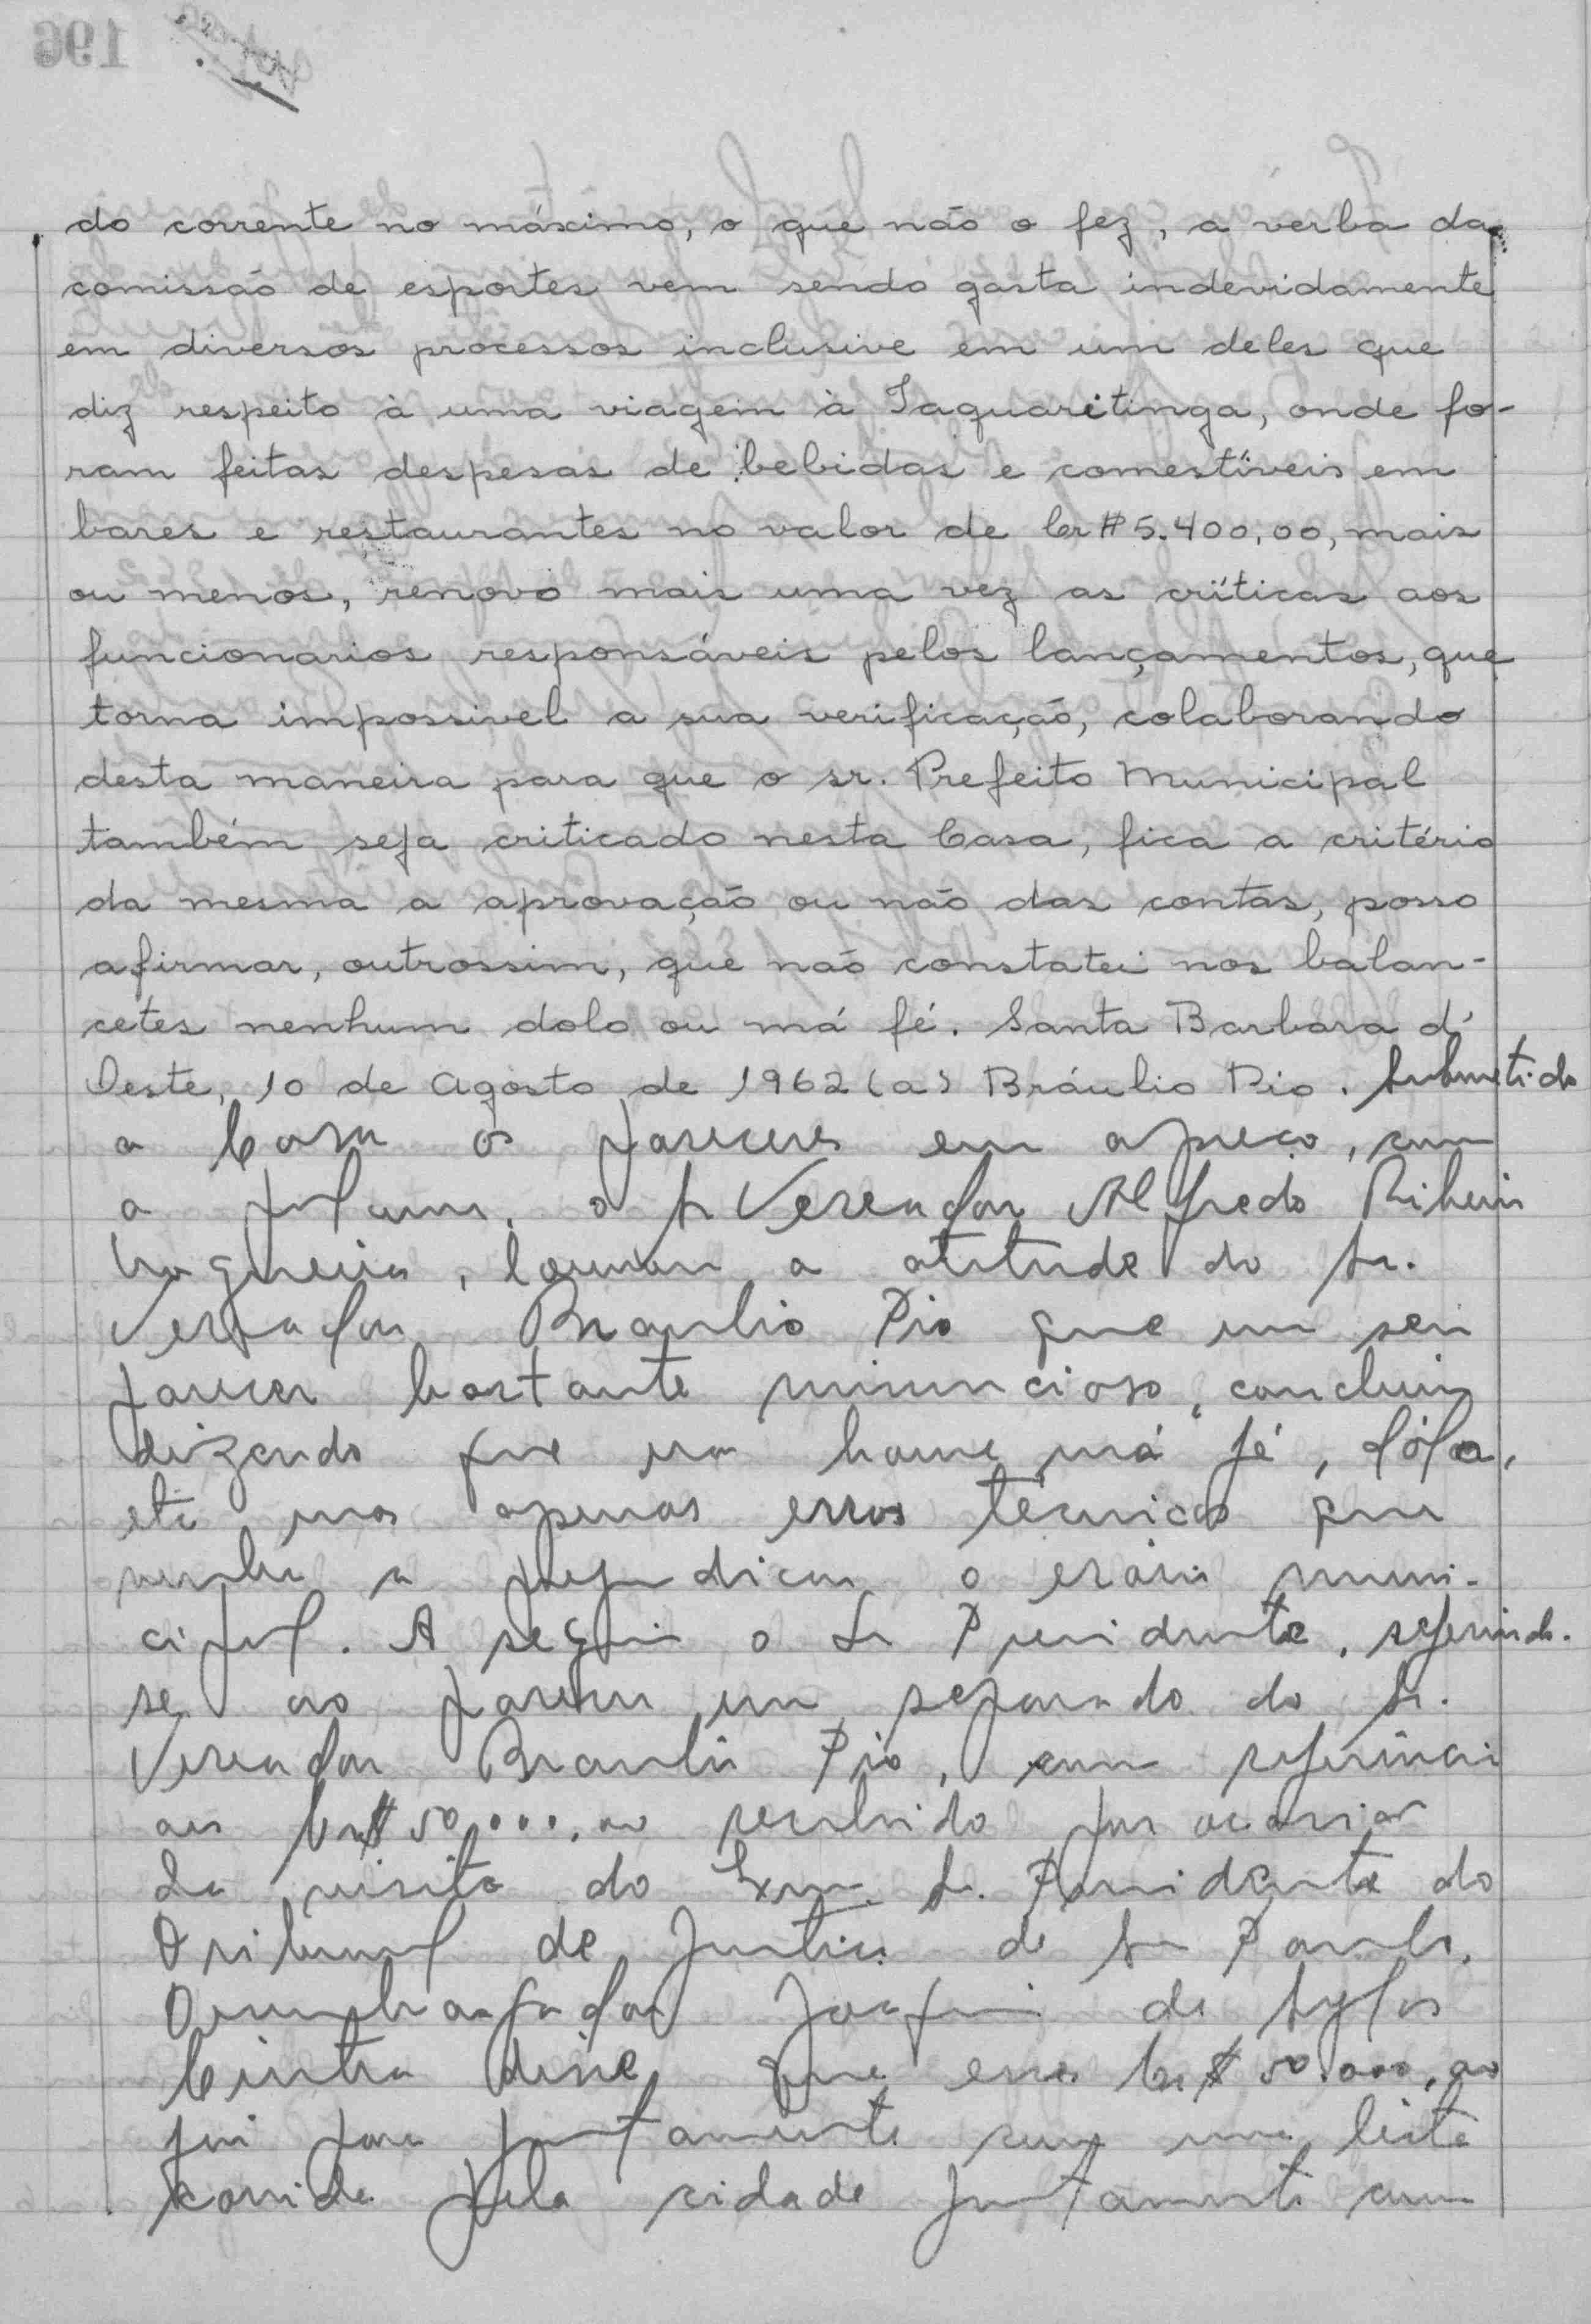 do corrente no máximo, o que não o fez, a verba da
comissão de esportes vem sendo gasta indevidamente
em diversos processos inclusive em um deles que
diz respeito à uma viagem à Taquaritinga, onde fo-
ram feitas despesas de bebidas e comestíveis em
bares e restaurantes no valor de Cr$ 5.400,00, mais
ou menos, renovo mais uma vez as críticas aos
funcionarios responsáveis pelos lançamentos, que
torna impossivel a sua verificação, colaborando
desta maneira para que o sr. Prefeito Municipal
também seja criticado nesta Casa, fica a critério
da mesma a aprovação ou não das contas, posso
afirmar, outrossim, que não constatei nos balan-
cetes nenhum dolo ou má fé. Santa Barbara d'
Oeste, 10 de Agosto de 1962 (a) Bráulio Pio. Submetido
a Casa os pareceres em apreço, com
a palavra, o Sr Vereador Alfredo Ribeiro
louvou a atitude do Sr.
Vereador Braulio Pio que em seu
parecer bastante minuncioso, concluiu
dizendo que não houve má fé, dólo,
etc mas apenas erros técnicos que
venha a prejudicar o erário muni-
cipal. A seguir o Sr Presidente, referindo-
se ao parecer em separado do Sr.
Vereador Braulio Pio, com referencia
aos Cr$ 50.000,00 recebido por ocasião
da visita do Exmo. Sr. Presidente do
Tribunal de Justiça de São Paulo,
Desembargador Joaquim de Sylos
Cintra disse que esses Cr$ 50.000,00
foi para juntamente com uma lista
corrida pela cidade juntamente com